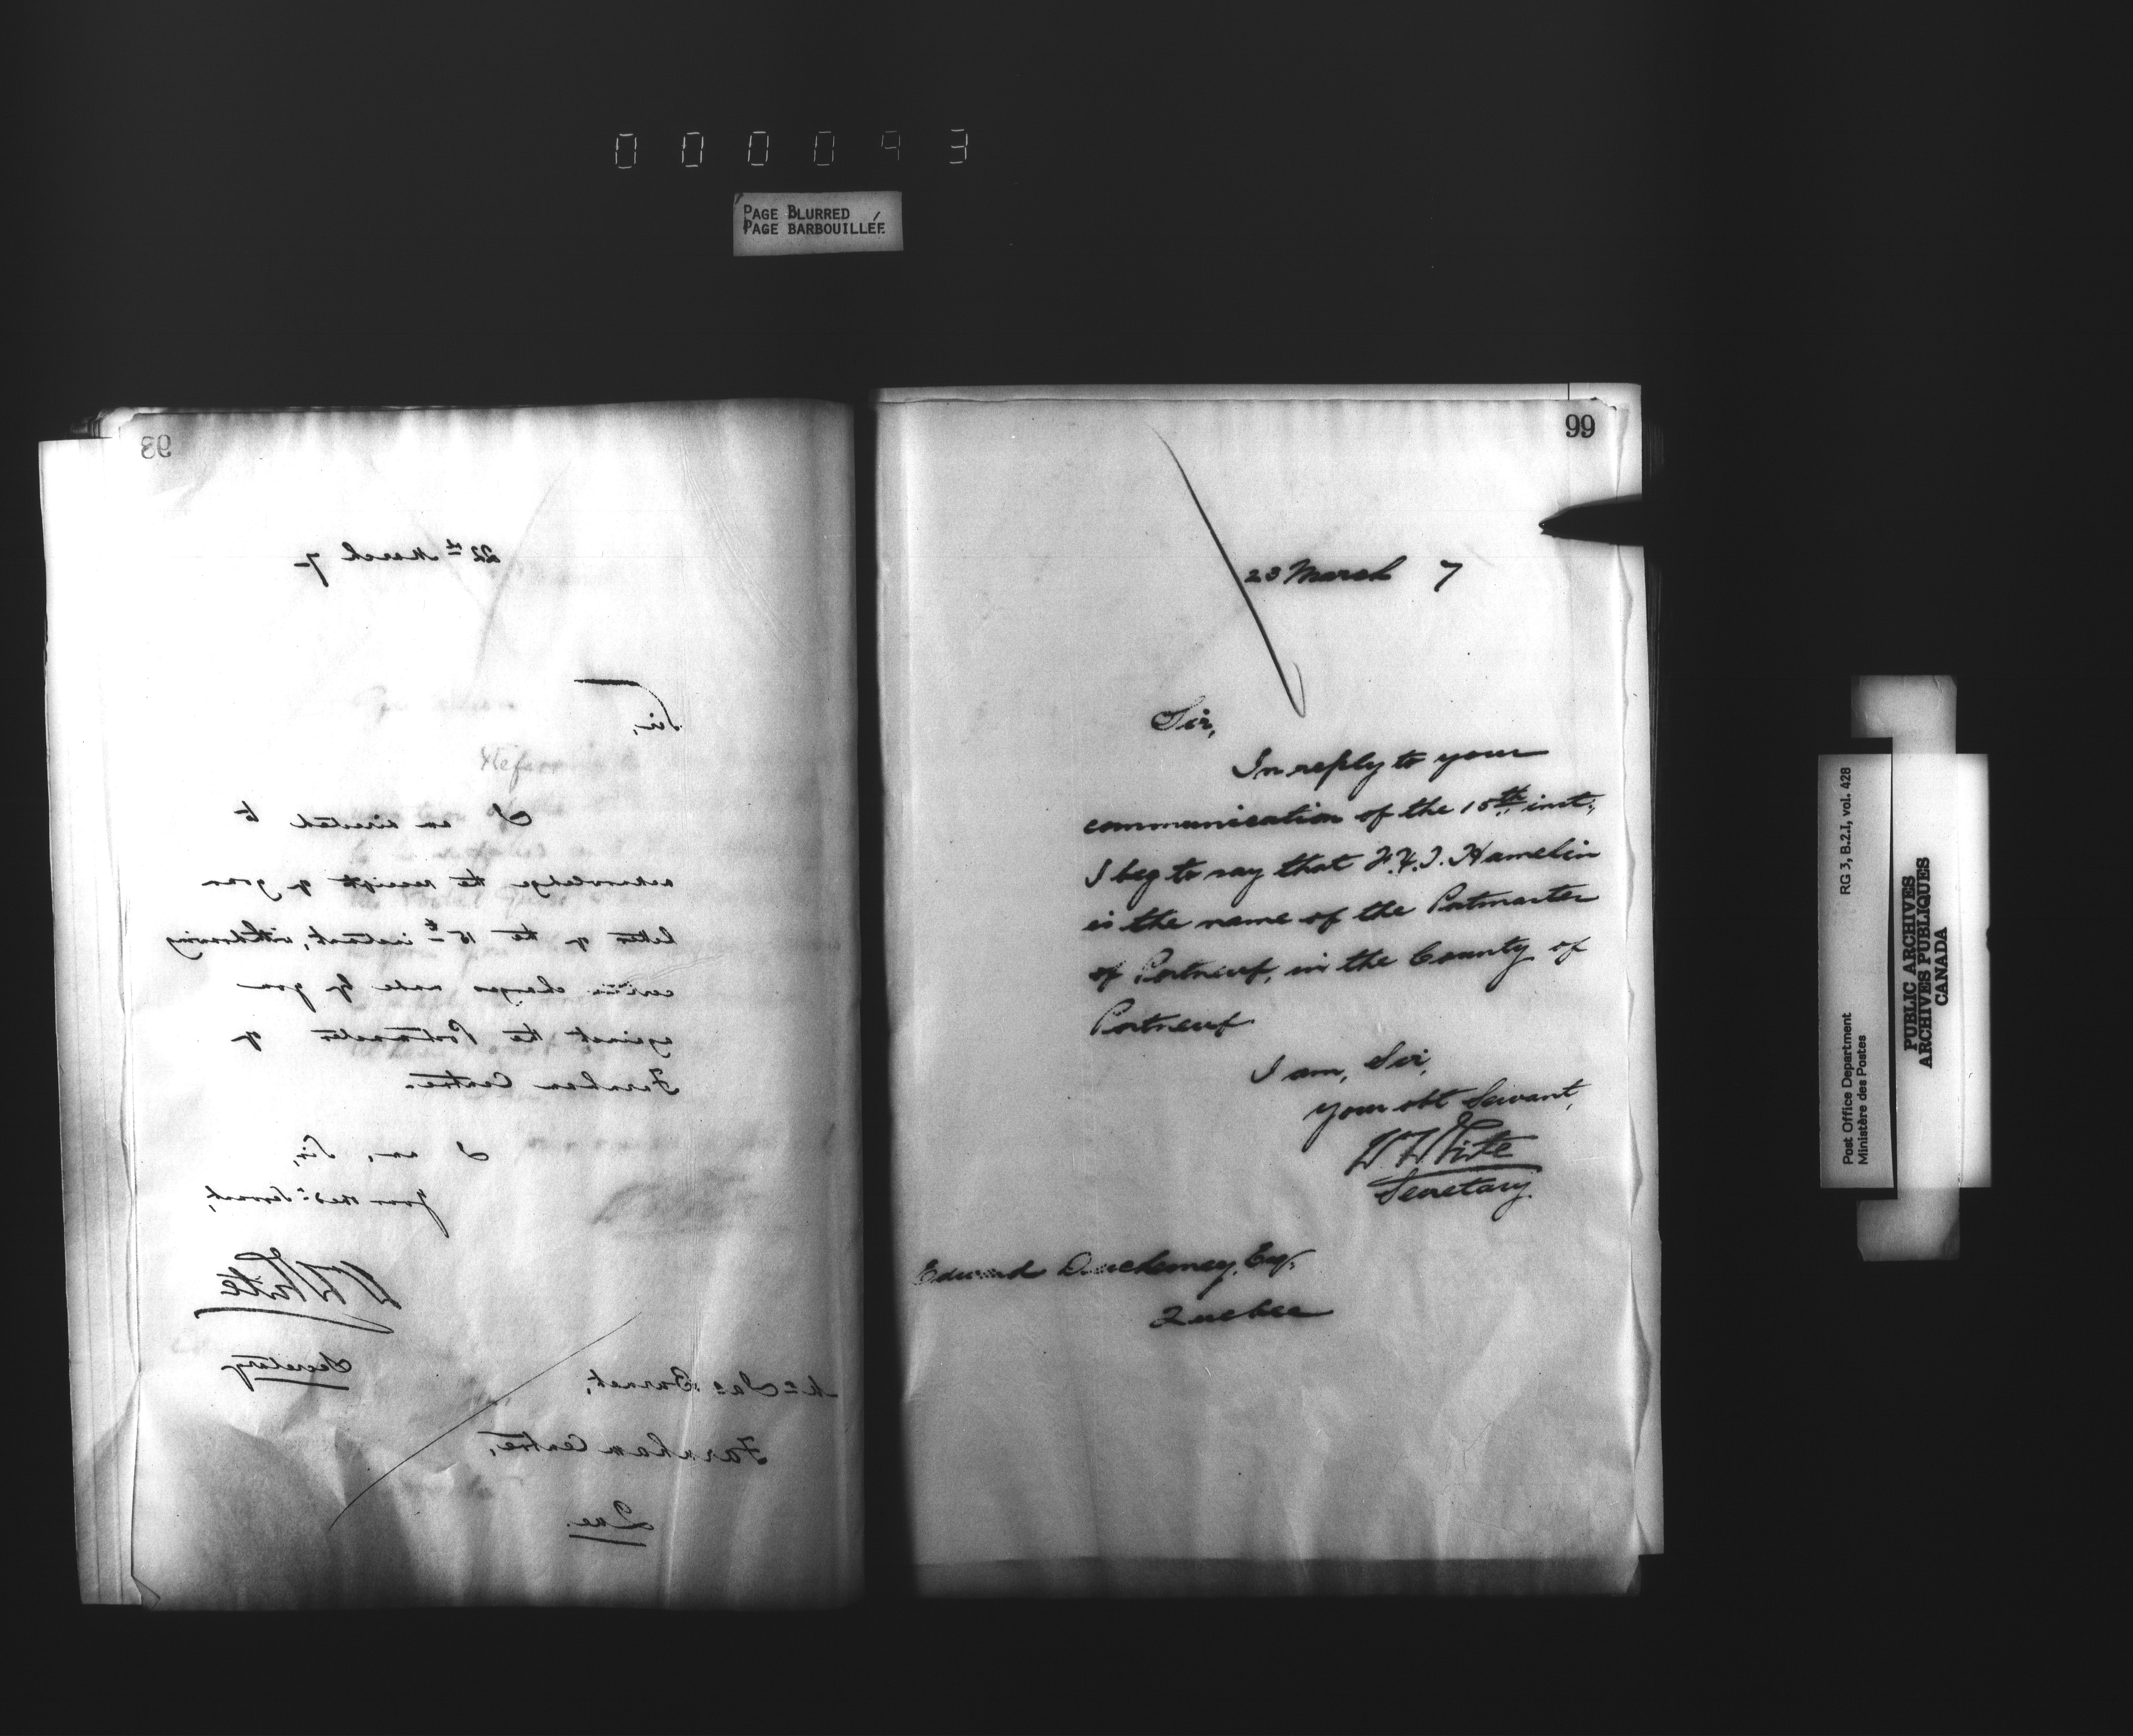 000093
PAGE BLURRED
PAGE BARBOUILLÉE
93
22nd March 7
Sir,
I am directed to
acknowledge the receipt of your
letter of the 15th instant, withdrawing
certain charges made by you
against the Postmaster of
Farnham Centre.
I am, Sir,
Your Obed. Servant,
W White
Secretary
Mr Jas Burnet,
Farnham Centre,
Que.
99
23 March 7
Sir,
In reply to your
communication of the 15th inst.,
I beg to say that Hamelin
is the name of the Postmaster
of Portneuf, in the County of
Portneuf
I am, Sir,
your obt Servant,
W White
Secretary
Edward Duchesnay, Esq.
Quebec
RG 3, B.2.I, vol. 428
Post Office Department
Ministère des Postes
PUBLIC ARCHIVES
ARCHIVES PUBLIQUES
CANADA